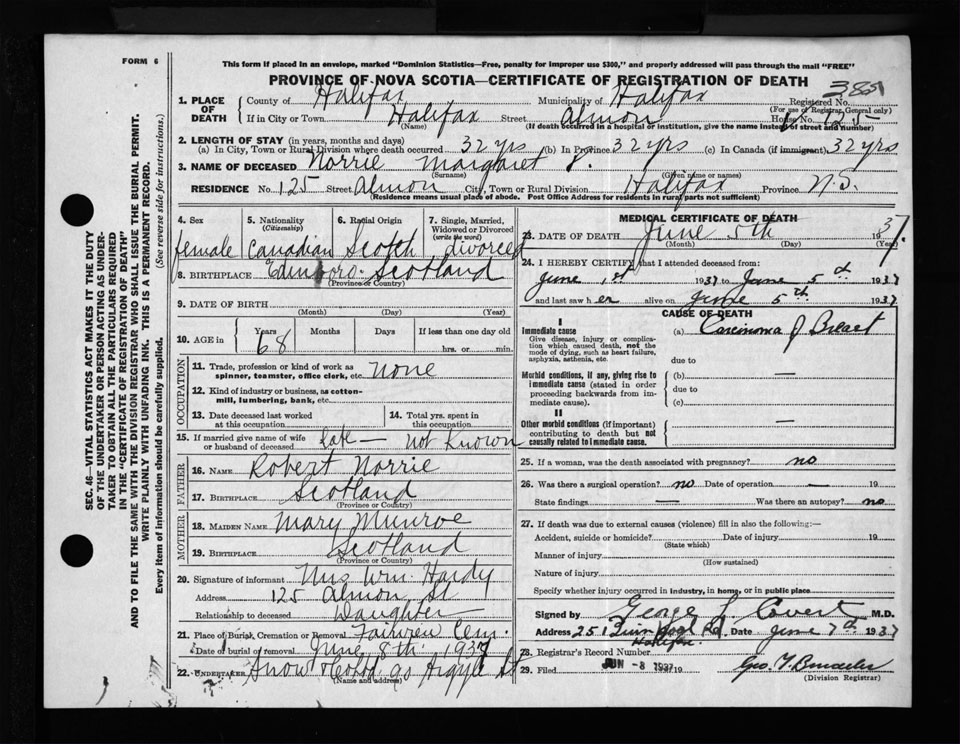 FORM 6
This form if placed in an envelope, marked "Dominion Statistics—Free, penalty for improper use $300," and properly addressed will pass through the mail "FREE"
PROVINCE OF NOVA SCOTIA—CERTIFICATE OF REGISTRATION OF DEATH
1. PLACE OF DEATH
County of Halifax Municipality of Halifax Registered No.
(For use of Registrar General only)
If in City or Town Halifax Street Almon House No. 125
(Name) (If death occurred in a hospital or institution, give the name instead of street and number)
2. LENGTH OF STAY (in years, months and days)
(a) In City, Town or Rural Division where death occurred 32 yrs (b) In Province 32 yrs (c) In Canada (if immigrant) 32 yrs
3. NAME OF DECEASED Norrie Margaret
(Surname) (Given name or names)
RESIDENCE No. 125 Street Almon City, Town or Rural Division Halifax Province N.S.
(Residence means usual place of abode. Post Office Address for residents in rural parts not sufficient)
4. Sex female
5. Nationality (Citizenship) Canadian
6. Racial Origin Scotch
7. Single, Married, Widowed or Divorced (write the word) divorced
8. BIRTHPLACE Edinboro. Scotland
(Province or Country)
9. DATE OF BIRTH
(Month) (Day) (Year)
10. AGE in Years 68 Months Days If less than one day old
hrs. or min.
OCCUPATION
11. Trade, profession or kind of work as spinner, teamster, office clerk, etc. none
12. Kind of industry or business, as cotton-mill, lumbering, bank, etc.
13. Date deceased last worked at this occupation
14. Total yrs. spent in this occupation
15. If married give name of wife or husband of deceased late — not known
FATHER
16. NAME Robert Norrie
17. BIRTHPLACE Scotland
(Province or Country)
MOTHER
18. MAIDEN NAME Mary Munroe
19. BIRTHPLACE Scotland
(Province or Country)
20. Signature of informant Mrs Wm. Hardy
Address 125 Almon St
Relationship to deceased Daughter
21. Place of Burial, Cremation or Removal Fairview Cem.
Date of burial or removal June 8th 1937
22. UNDERTAKER Snow & Co Ltd. 90 Argyle St
(Name and address)
MEDICAL CERTIFICATE OF DEATH
23. DATE OF DEATH June 5th 1937.
(Month) (Day) (Year)
24. I HEREBY CERTIFY that I attended deceased from:
June 1st 1937 to June 5th 1937
and last saw her alive on June 5th. 1937
CAUSE OF DEATH
I
Immediate cause
Give disease, injury or complication which caused death, not the mode of dying, such as heart failure, asphyxia, asthenia, etc.
(a) Carcinoma of Breast
due to
Morbid conditions, if any, giving rise to immediate cause (stated in order proceeding backwards from immediate cause).
(b) —
due to
(c)
II
Other morbid conditions (if important) contributing to death but not causally related to immediate cause.
—
25. If a woman, was the death associated with pregnancy? no
26. Was there a surgical operation? no Date of operation — 19
State findings — Was there an autopsy? no
27. If death was due to external causes (violence) fill in also the following:—
Accident, suicide or homicide? Date of injury 19
(State which)
Manner of injury
(How sustained)
Nature of injury
Specify whether injury occurred in industry, in home, or in public place
Signed by George L. Covert M.D.
Address 251 Rd. Halifax Date June 7th 1937
28. Registrar's Record Number
29. Filed JUN -8 1937 19
(Division Registrar)
SEC. 46—VITAL STATISTICS ACT MAKES IT THE DUTY
OF THE UNDERTAKER OR PERSON ACTING AS UNDER-
TAKER TO OBTAIN ALL THE PARTICULARS REQUIRED
IN THE "CERTIFICATE OF REGISTRATION OF DEATH"
AND TO FILE THE SAME WITH THE DIVISION REGISTRAR WHO SHALL ISSUE THE BURIAL PERMIT.
WRITE PLAINLY WITH UNFADING INK. THIS IS A PERMANENT RECORD.
Every item of information should be carefully supplied. (See reverse side for instructions.)